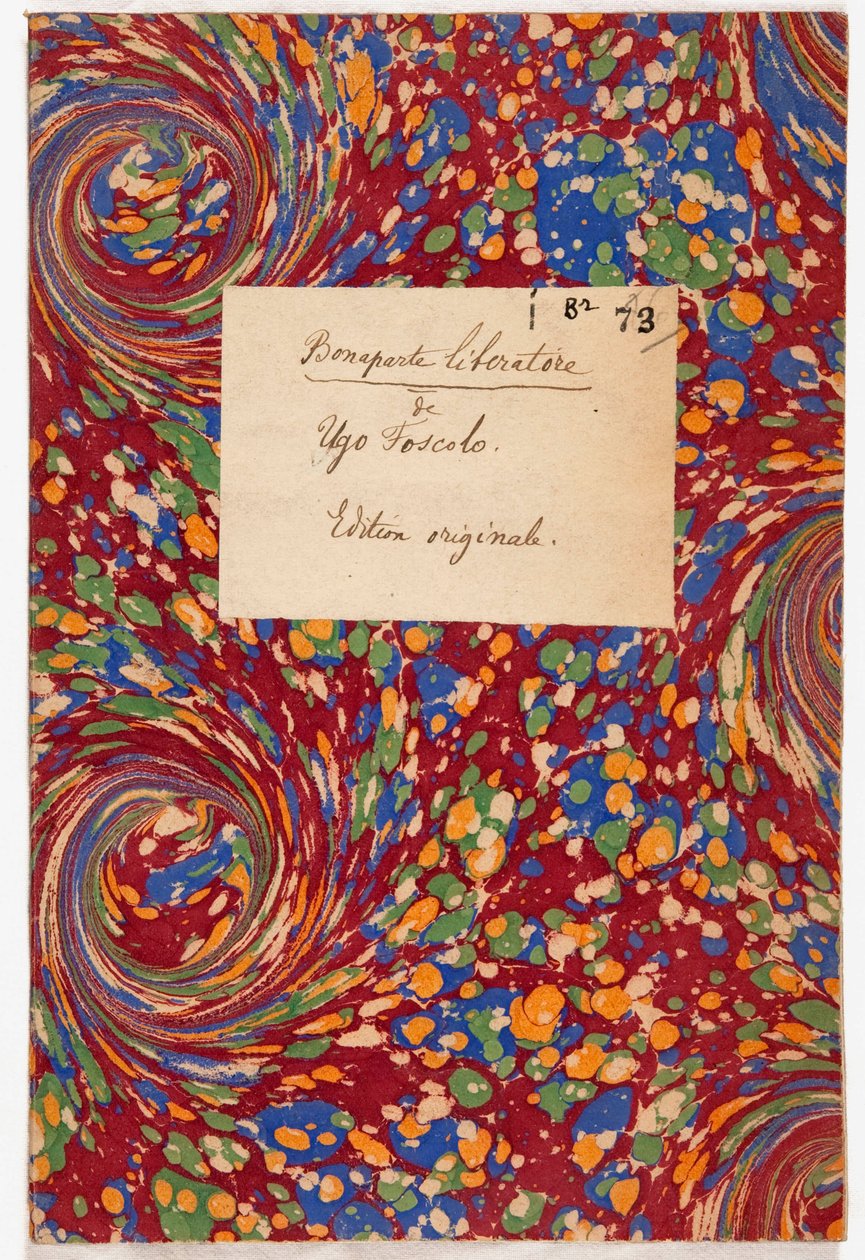 1 Br 73
Bonaparte liberatore
de
Ugo Foscolo.
Edition originale.